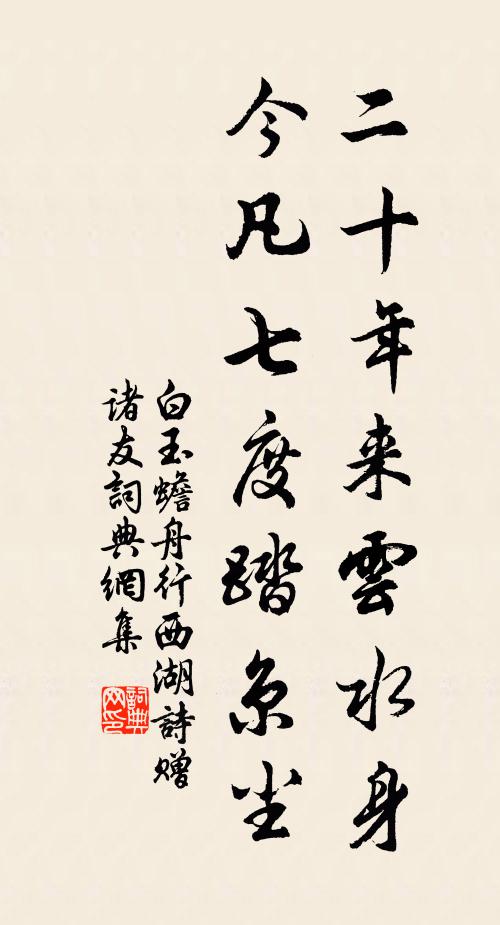 二十年来雲水身
今凡七度踏京尘
白玉蟾舟行西湖詩赠
诸友詞典網集
詞典
网印